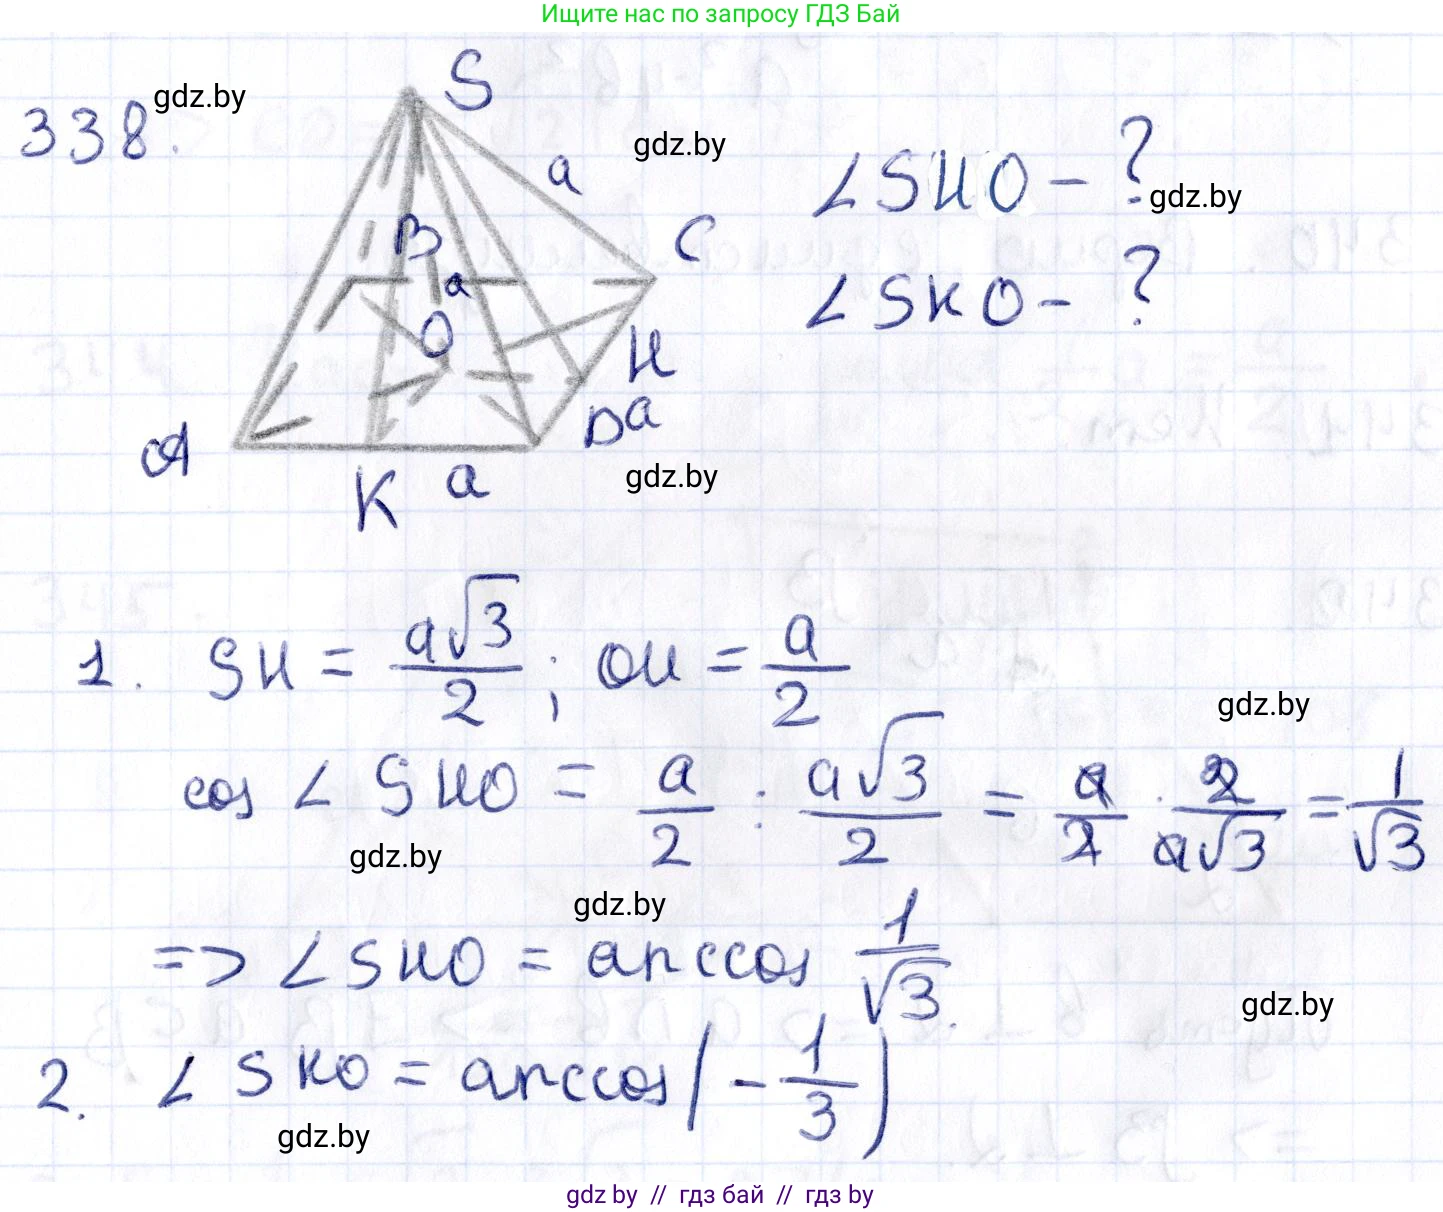 Ищите нас по запросу ГДЗ Бай
338.
gdz.by
S
a
gdz.by
∠SHO - ?
gdz.by
B
C
a
∠SKO - ?
O
H
A
D a
gdz.by
K a
1. SH = a√3/2 ; OH = a/2
gdz.by
cos ∠ SHO = a/2 : a√3/2 = a/2 · 2/a√3 = 1/√3
gdz.by
gdz.by
=> ∠SHO = arccos 1/√3.
gdz.by
2. ∠ SKO = arccos(-1/3)
gdz.by
gdz.by // гдз бай // гдз by